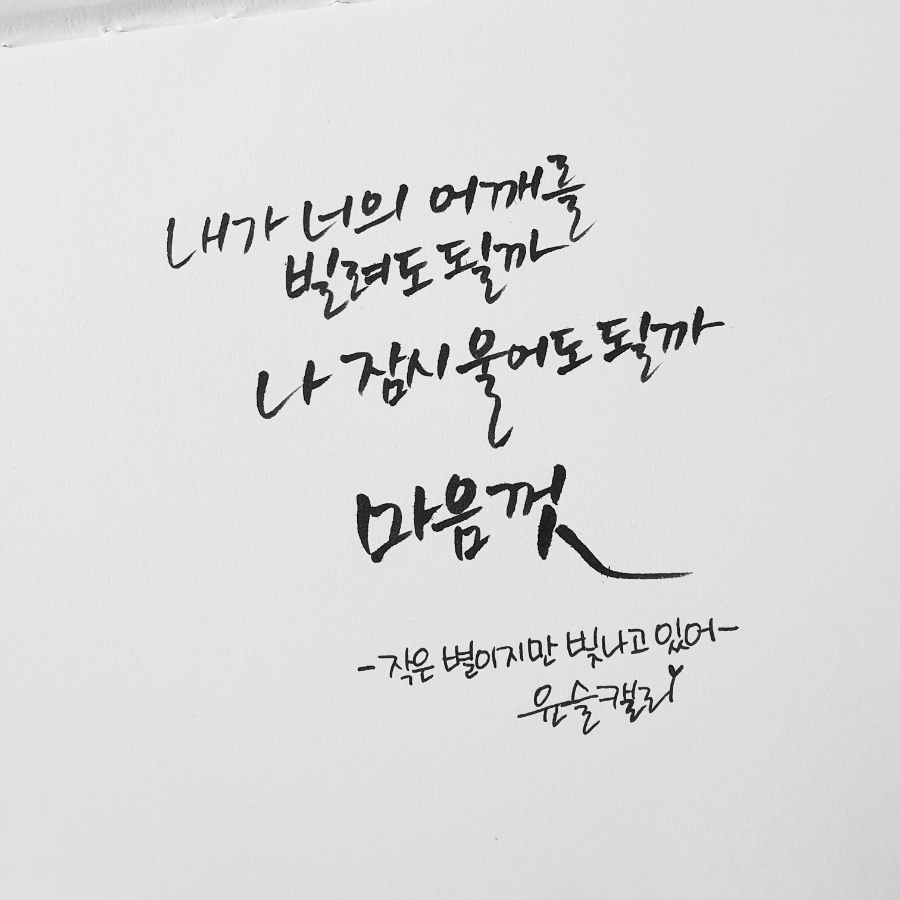 내가 너의 어깨를
빌려도 될까
나 잠시 울어도 될까
마음껏
-작은 별이지만 빛나고 있어-
윤슬캘리